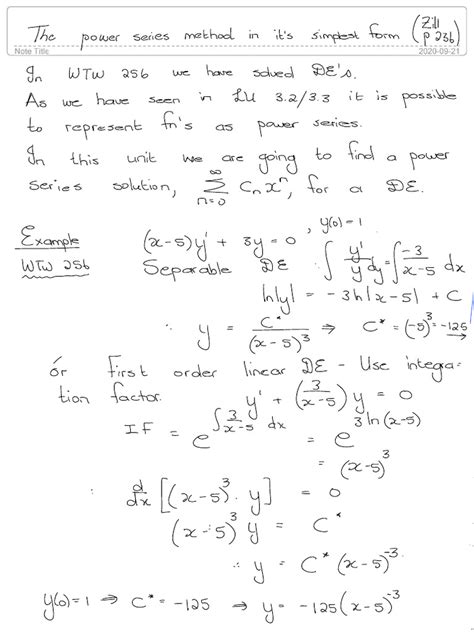 The power series method in it's simplest form (Zill p 236)
Note Title
2020-09-21
In WTW 256 we have solved DE's.
As we have seen in LU 3.2/3.3 it is possible
to represent fn's as power series.
In this unit we are going to find a power
series solution, ∞∑n=0 Cₙxⁿ, for a DE.
Example (x-5)y' + 3y = 0 , y(0)=1
WTW 256 Separable DE : ∫ y'/y dy = ∫ -3/(x-5) dx
ln|y| = -3ln|x-5| + C
∴ y = C*/(x-5)³ ⇒ C* = (-5)³ = -125
ór First order linear DE - Use integra-
tion factor. y' + (3/(x-5)) y = 0
IF = e^(∫ 3/(x-5) dx) = e^(3 ln(x-5))
= (x-5)³
∴ d/dx [(x-5)³ · y] = 0
(x-5)³ y = C*
∴ y = C* (x-5)⁻³
y(0)=1 ⇒ C* = -125 ⇒ y = -125(x-5)⁻³